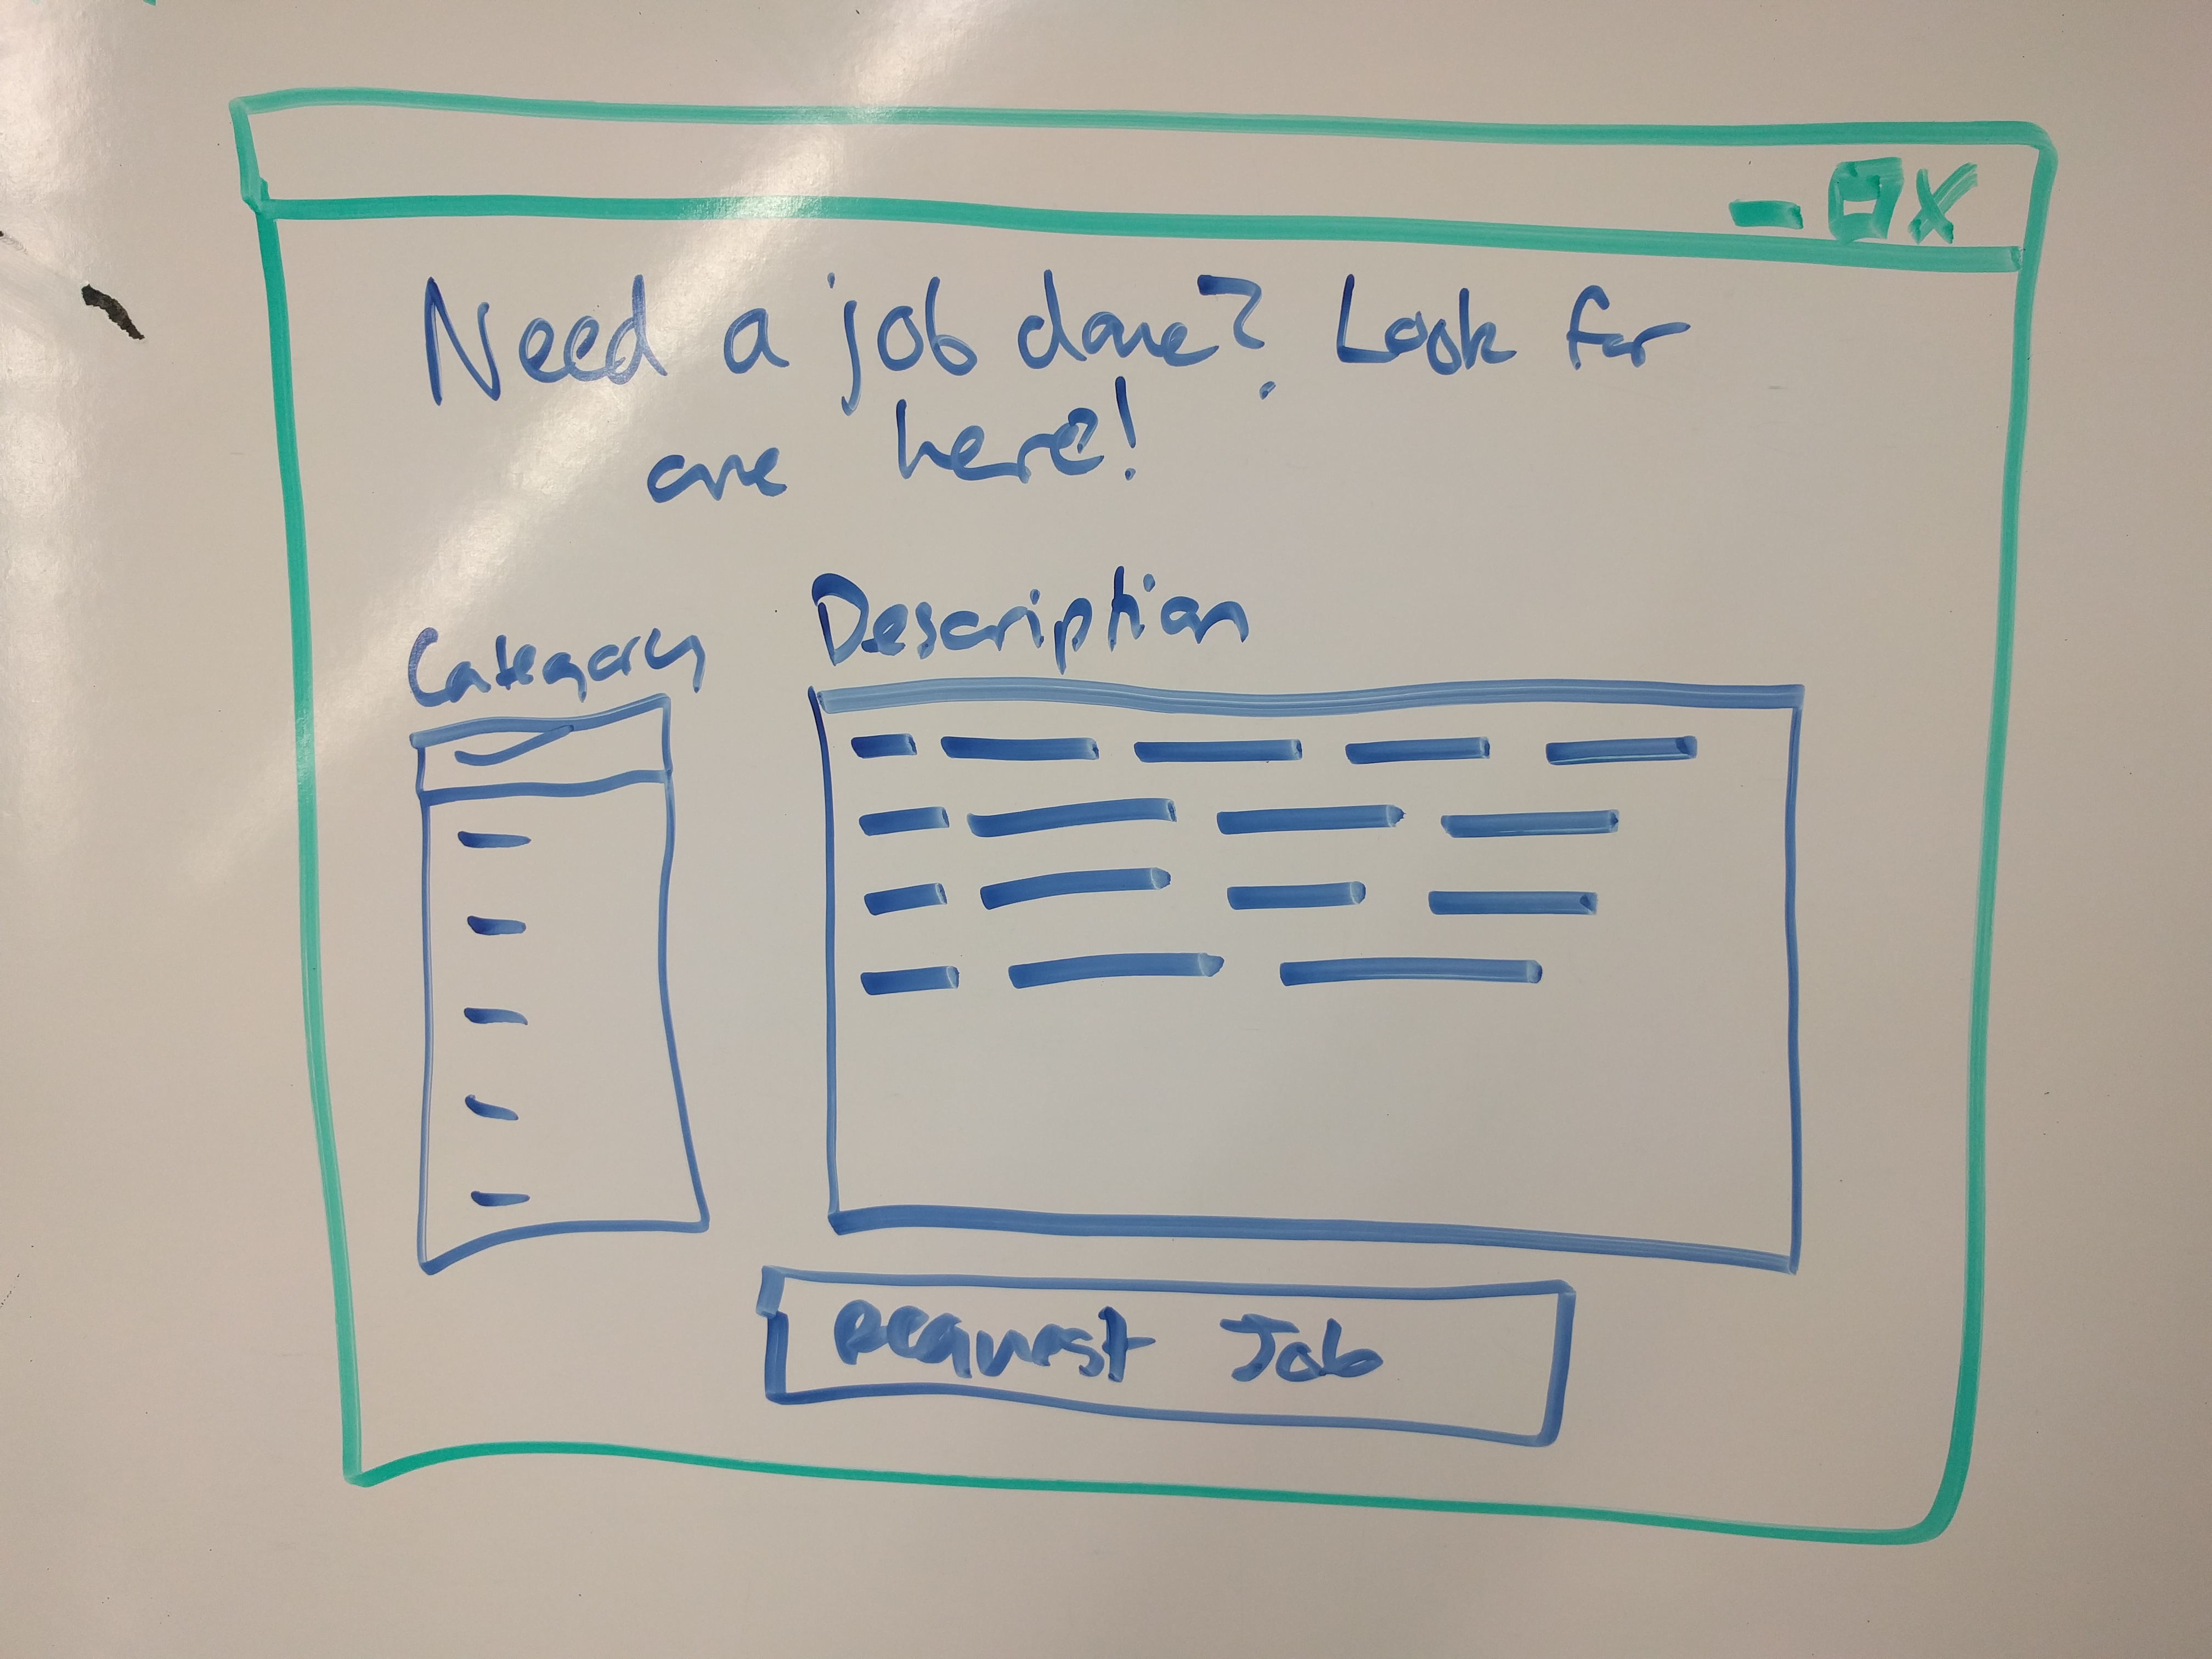 Need a job done? Look for
one here!
Category
Description
Request Job